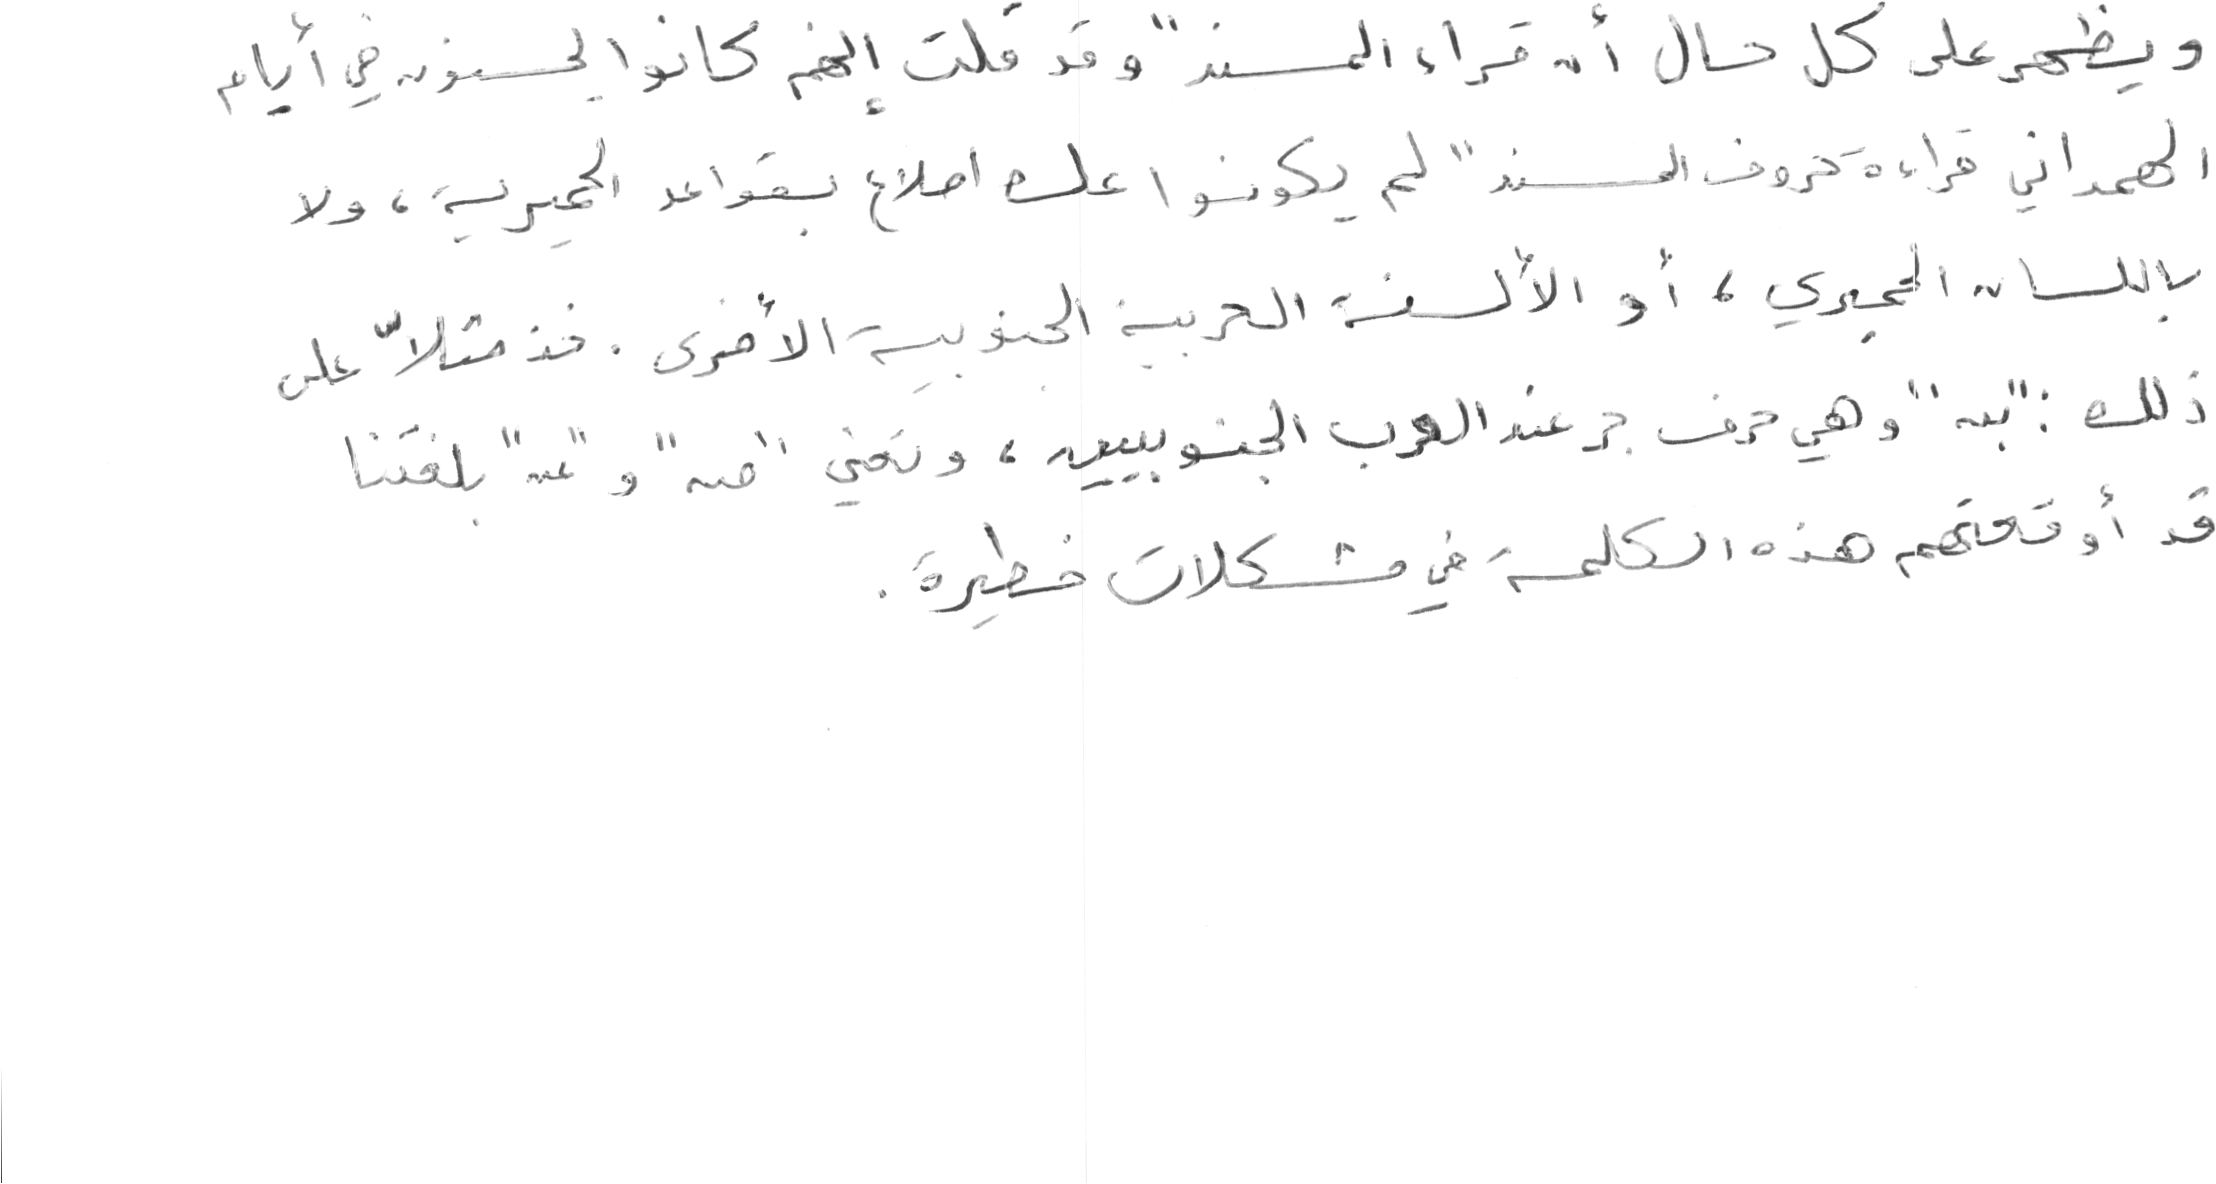 ويظهر على كل حال أن قراء المسند "وقد قلت إنهم كانوا يحسنون في أيام
الهمداني قراءة حروف المسند" لم يكونوا على اطلاع بقواعد الحميرية، ولا
باللسان الحميري، أو الألسنة العربية الجنوبية الأخرى. خذ مثلاً على
ذلك: "بن" وهي حرف جر عند العرب الجنوبيين، وتعني "من" و "عن" بلغتنا
قد أوقعتهم هذه الكلمة في مشكلات خطيرة.